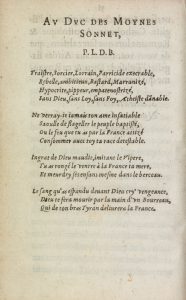 AV DVC DES MOYNES
SONNET,
P. L. D. B.
Traistre, sorcier, Lorrain, Parricide execrable,
Rebelle, ambitieux, Bastard, Marranizé,
Hypocrite, pippeur, empatenostrizé,
Sans Dieu, sans Loy, sans Foy, Atheiste dānable.
Ne verray-ie iamais ton ame insatiable
Saoulle de flageller le peuple baptisé,
Ou le feu que tu as par la France attizé
Consommer auec toy ta race detestable.
Ingrat de Dieu maudit, imitant le Vipere,
Tu as rongé le ventre à la France ta mere,
Et meurdry ses enfans mesme dans le berceau.
Le sang qu'as espandu deuant Dieu cry' vengeance,
Dieu te fera mourir par la main d'vn Bourreau,
Qui de son bras Tyran deliurera la France.